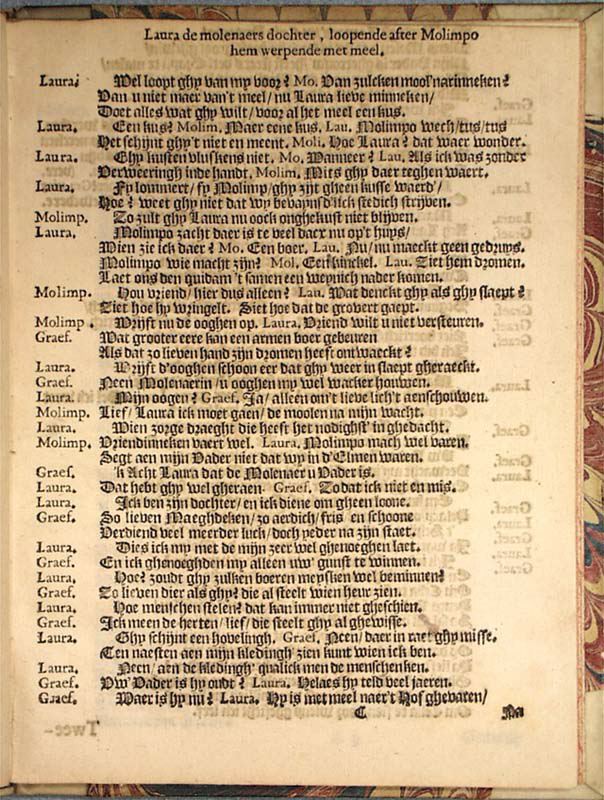 Laura de molenaers dochter, loopende after Molimpo
hem werpende met meel.
Laura. Wel loopt ghy van my voor? Mo. Van zulcken mool'narinneken?
Van u niet maer van't meel/ nu Laura lieve minneken/
Doet alles wat ghy wilt/ voor al het meel een kus.
Laura. Een kus? Molim. Maer eene kus, Lau. Molimpo wech/tus/tus
Het schijnt ghy't niet en meent. Moli. Hoe Laura? dat waer wonder.
Laura. Ghy kusten vluskens niet. Mo. Wanneer? Lau. Als ick was zonder
Verweeringh inde handt. Molim. Mits ghy daer teghen waert.
Laura. Fy lommert/ fy Molimp/ghy zijt gheen kusse waerd'/
Hoe? weet ghy niet dat wy bevaijnsd'lick stedich strijven.
Molimp. Zo zult ghy Laura nu oock onghekust niet blijven.
Laura. Molimpo zacht daer is te veel daer nu op't huys/
Wien zie ick daer? Mo. Een boer. Lau. Nu/ nu maeckt geen gedruys.
Molimpo wie macht zijn? Mol. Een kinckel. Lau. Ziet hem dromen.
Laet ons den quidam 't samen een weynich nader komen.
Molimp. Hou vriend/ hier dus alleen? Lau. Wat denckt ghy als ghy slaept?
Ziet hoe hy wringelt. Siet hoe dat de grovert gaept.
Molimp. Wrijft nu de ooghen op. Laura. Vriend wilt u niet versteuren.
Graef. Wat grooter eere kan een armen boer gebeuren
Als dat zo lieven hand zijn dromen heeft ontwaeckt?
Laura. Wrijft d'ooghen schoon eer dat ghy weer in slaept gheraeckt.
Graef. Neen Molenaerin/ u ooghen my wel wacker houwen.
Laura. Mijn oogen? Graef. Ja/ alleen om't lieve lich't aenschouwen.
Molimp. Lief/ Laura ick moet gaen/ de moolen na mijn wacht.
Laura. Wien zorge draeght die heeft het nodighst' in ghedacht.
Molimp. Vriendinneken vaert wel. Laura. Molimpo mach wel varen.
Segt aen mijn Vader niet dat wy in d'Elmen waren.
Graef. 'k Acht Laura dat de Molenaer u Vader is.
Laura. Dat hebt ghy wel gheraen. Graef. Zo dat ick niet en mis.
Laura. Ick ben zijn dochter/ en ick diene om gheen loone.
Graef. So lieven Maeghdeken/ zo aerdich/ fris en schoone
Verdiend veel meerder luck/ doch yeder na zijn staet.
Laura. Dies ick my met de mijn zeer wel ghenoeghen laet.
Graef. En ick ghenoeghden my alleen uw' gunst te winnen.
Laura. Hoe? zoudt ghy zulken boeren meysken wel beminnen?
Graef. Zo lieven dier als ghy? die al steelt wien heur zien.
Laura. Hoe menschen stelen? dat kan immer niet gheschien.
Graef. Ick meen de herten/ lief/ die steelt ghy al ghewisse.
Laura. Ghy schijnt een hovelingh. Graef. Neen/ daer in raet ghy misse.
Ten naesten aen mijn kledingh' zien kunt wien ick ben.
Laura. Neen/ aen de kledingh' qualick men de menschen ken.
Graef. Vw' Vader is hy oudt? Laura. Helaes hy teld veel jaeren.
Graef. Waer is hy nu? Laura. Hy is met meel naer't Hof ghevaren/
C Na